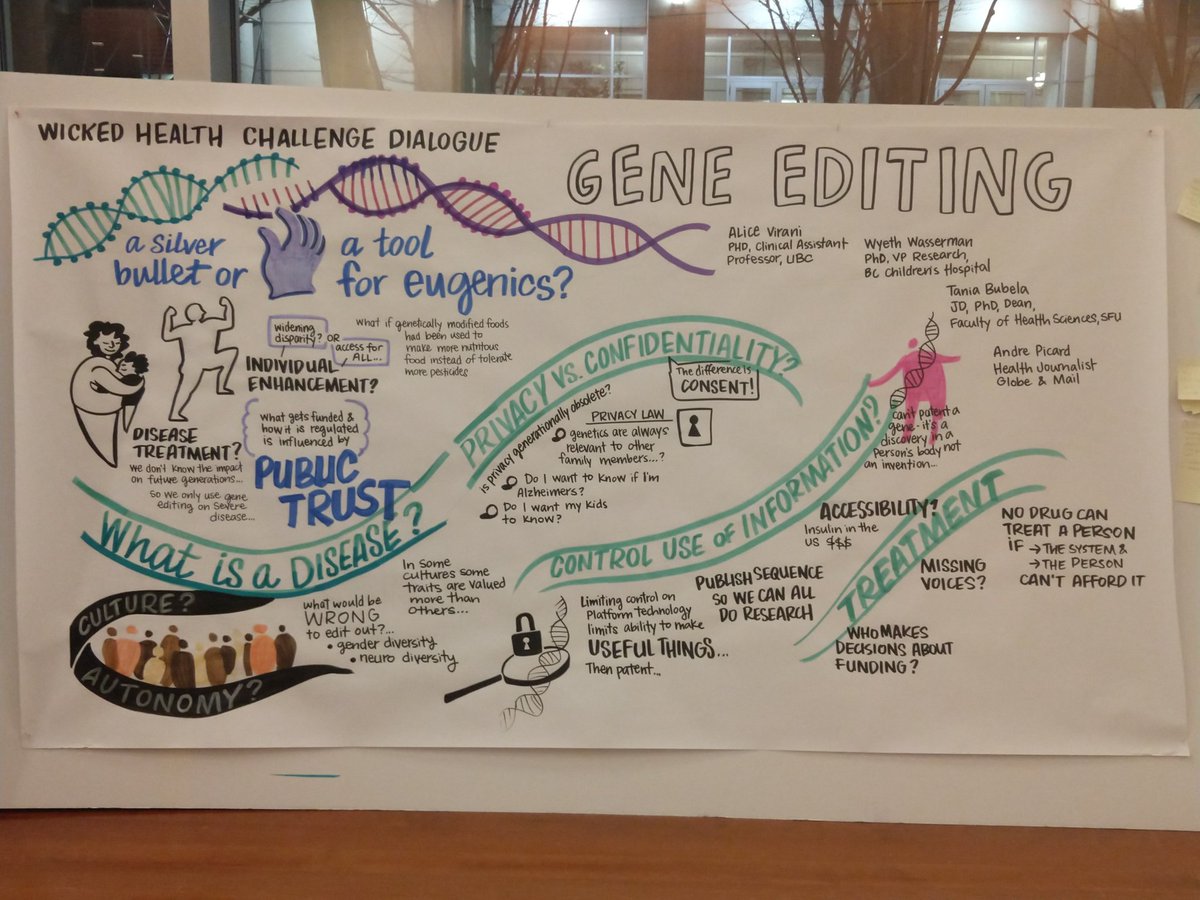 WICKED HEALTH CHALLENGE DIALOGUE
GENE EDITING
a silver
bullet or
a tool
for eugenics?
Alice Virani
PHD, Clinical Assistant
Professor, UBC
Wyeth Wasserman
PhD, VP Research,
BC Children's Hospital
Tania Bubela
JD, PhD, Dean,
Faculty of Health Sciences, SFU
Andre Picard
Health Journalist
Globe & Mail
widening
disparity?
OR
access for
ALL...
INDIVIDUAL
ENHANCEMENT?
What if genetically modified foods
had been used to
make more nutritous
food instead of tolerate
more pesticides
DISEASE
TREATMENT?
We don't know the impact
on future generations...
So we only use gene
editing on severe
disease...
What gets funded &
how it is regulated
is influenced by
PUBLIC
TRUST
What is a DISEASE?
CULTURE?
AUTONOMY?
What would be
WRONG
to edit out?...
• gender diversity
• neuro diversity
In some
cultures some
traits are valued
more than
others...
PRIVACY VS. CONFIDENTIALITY?
The difference is
CONSENT!
is privacy generationally obsolete?
PRIVACY LAW
genetics are always
relevant to other
family members...?
Do I want to know if I'm
Alzheimers?
Do I want my kids
to know?
CONTROL USE OF INFORMATION?
can't patent a
gene - it's a
discovery in a
Person's body not
an invention...
Limiting control on
Platform technology
limits ability to make
USEFUL THINGS...
Then patent...
PUBLISH SEQUENCE
SO WE CAN ALL
DO RESEARCH
TREATMENT
ACCESSIBILITY?
Insulin in the
US $$$
MISSING
VOICES?
WHO MAKES
DECISIONS ABOUT
FUNDING?
NO DRUG CAN
TREAT A PERSON
IF → THE SYSTEM &
→ THE PERSON
CAN'T AFFORD IT